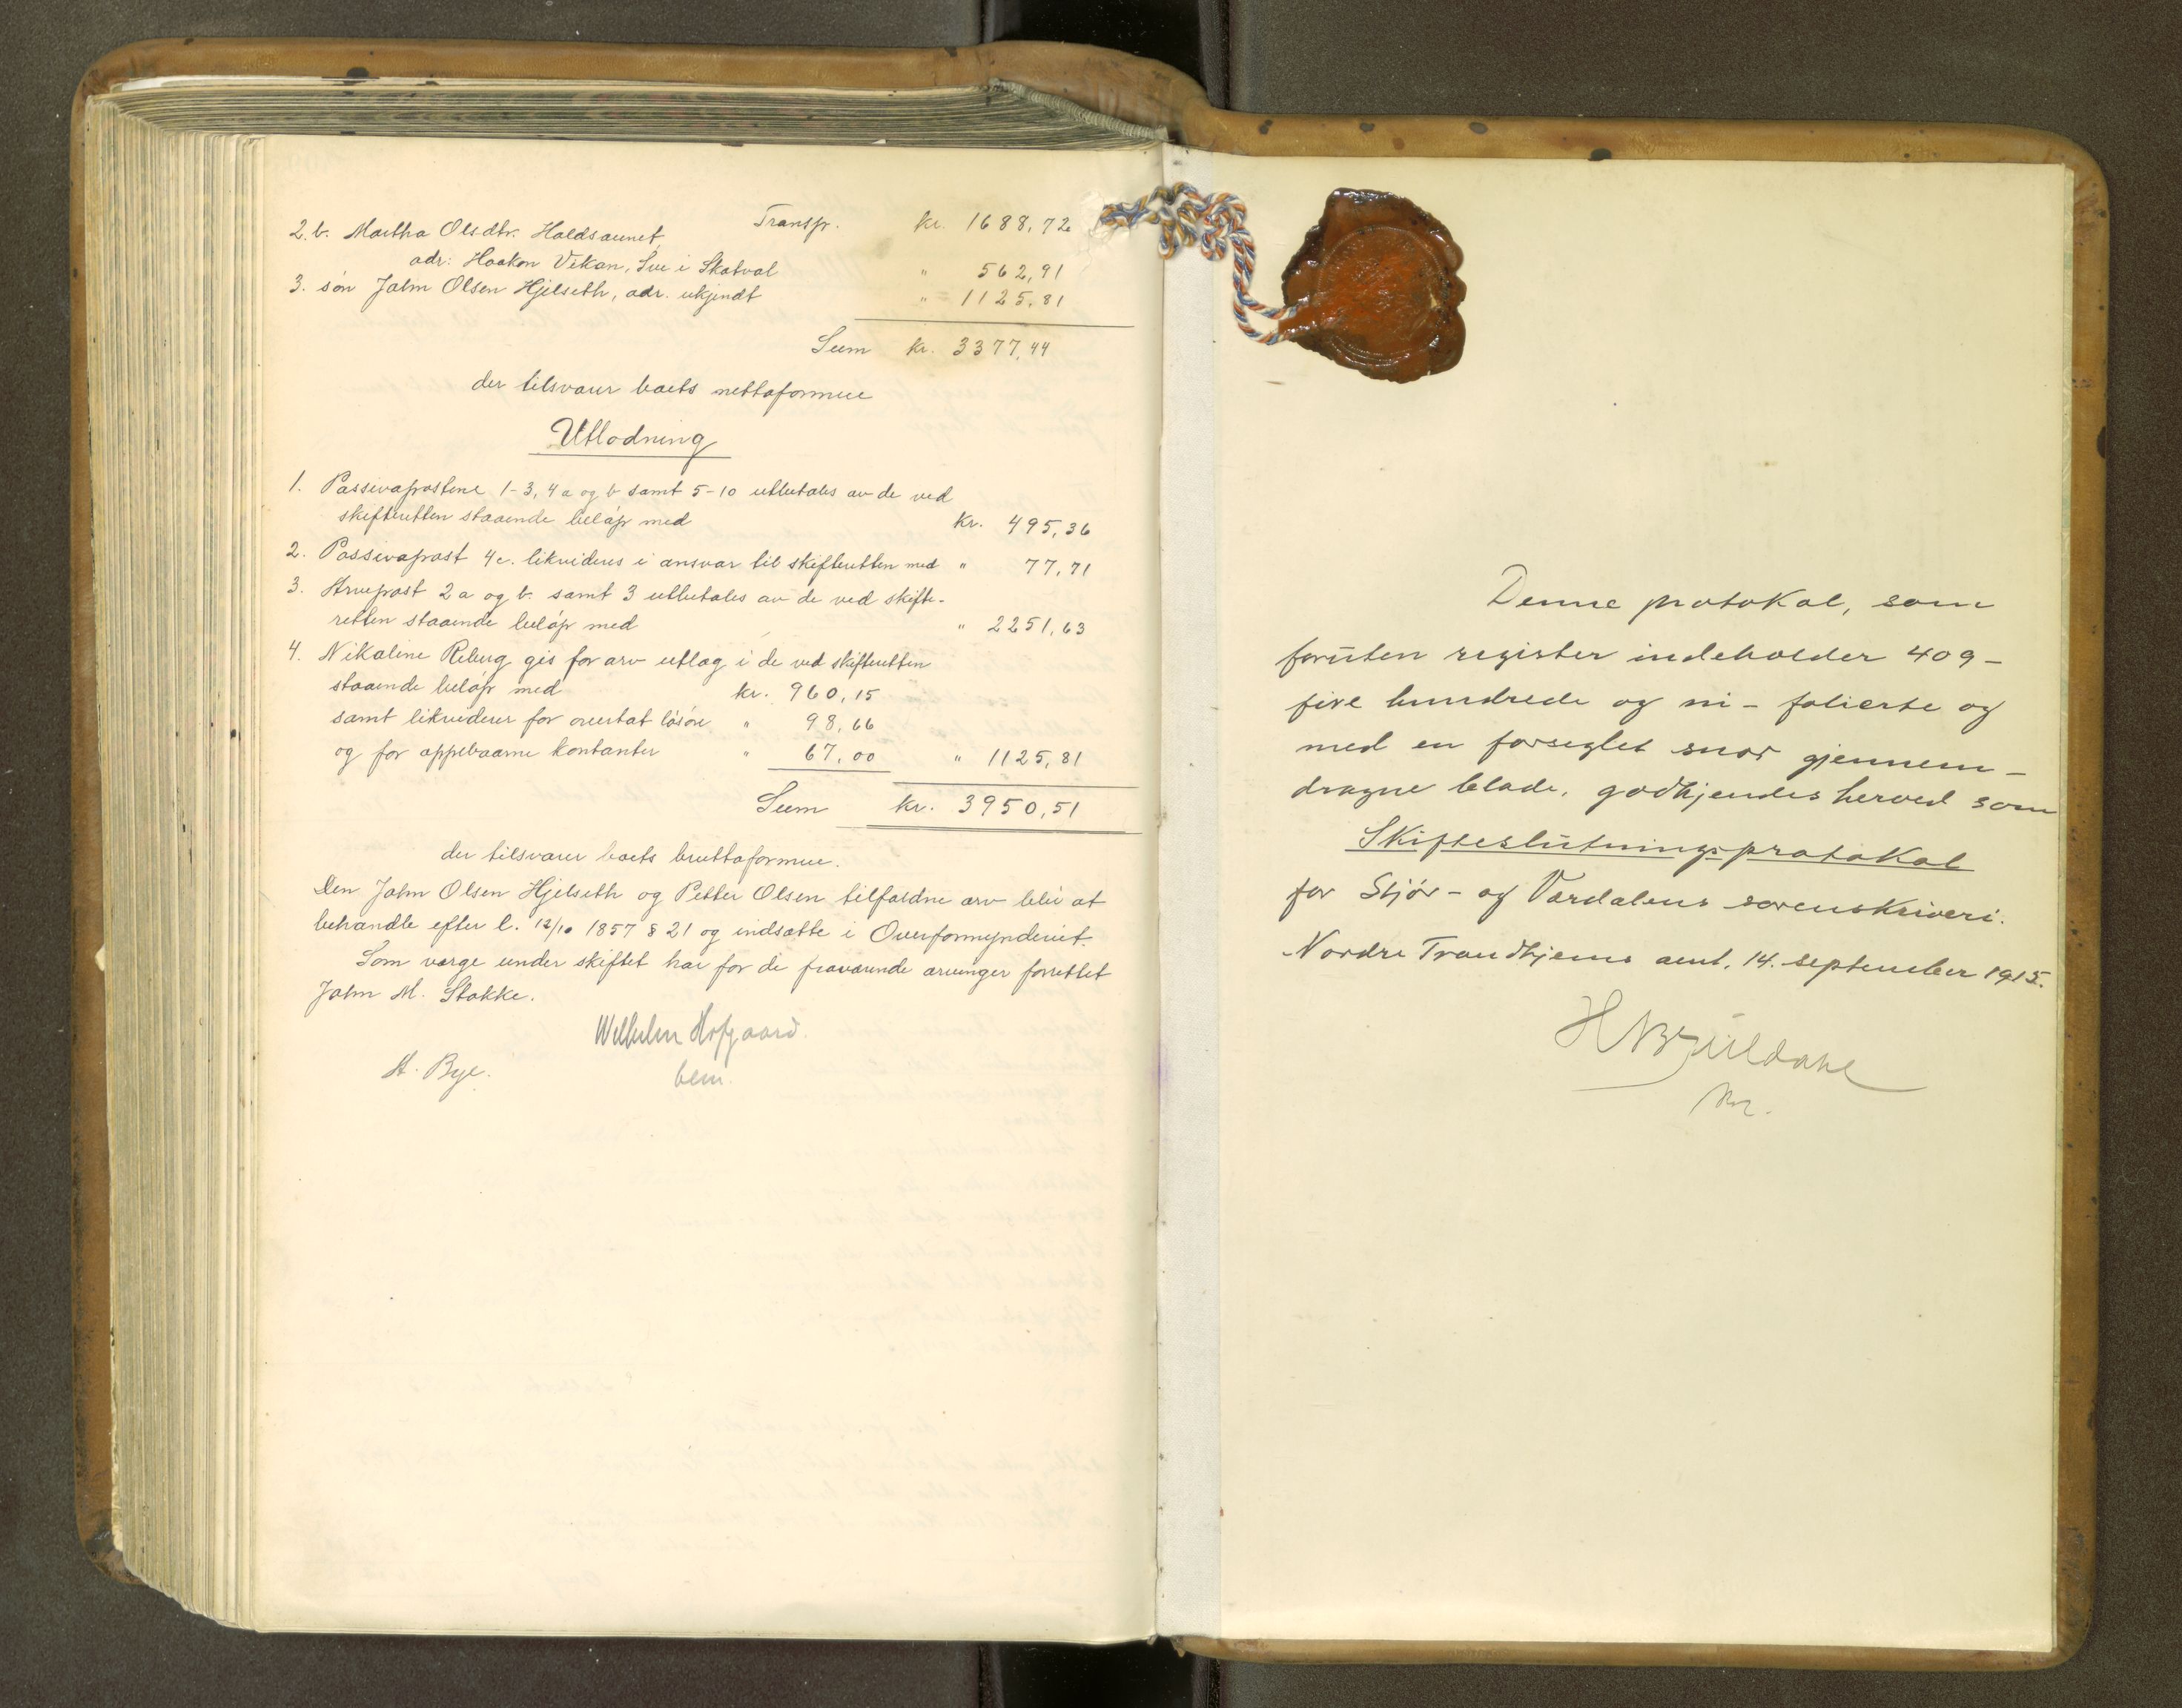 Transp. kr. 1688,72
2.b. Martha Olsdtr. Haldsaunet,
adr: Haakon Vikan, Sve i Skatval " 562,91
3. søn John Olsen Hjelseth, adr. ukjendt " 1125,81
Sum kr. 3377,44
der tilsvarer boets nettoformue
Utlodning
1. Passivapostene 1-3, 4a og b samt 5-10 utbetales av de ved
skifteretten staaende beløp med kr. 495,36
2. Passivapost 4c. likvideres i ansvar til skifteretten med " 77,71
3. Arvepost 2a og b. samt 3 utbetales av de ved skifte-
retten staaende beløp med " 2251,63
4. Nikoline Reberg gis for arv utlæg i de ved skifteretten
staaende beløp med kr. 960,15
samt likviderer for overtat løsøre " 98,66
og for oppebaarne kontanter " 67,00 " 1125,81
Sum kr. 3950,51
der tilsvarer boets bruttoformue.
Den John Olsen Hjelseth og Petter Olsen tilfaldne arv blir at
behandle efter l. 12/10 1857 § 21 og indsætte i Overformynderiet.
Som verge under skiftet har for de fraværende arvinger forrettet
John M. Stokke.
Wilhelm Hofgaard
bem.
A. Bye.
Denne protokol, som
foruten register indeholder 409-
fire hundrede og ni - folierte og
med en forseglet snor gjennem-
dragne blade, godkjendes herved som
Skifteslutningsprotokol
for Stjør- og Værdalens sorenskriveri.
Nordre Trondhjems amt, 14. september 1915.